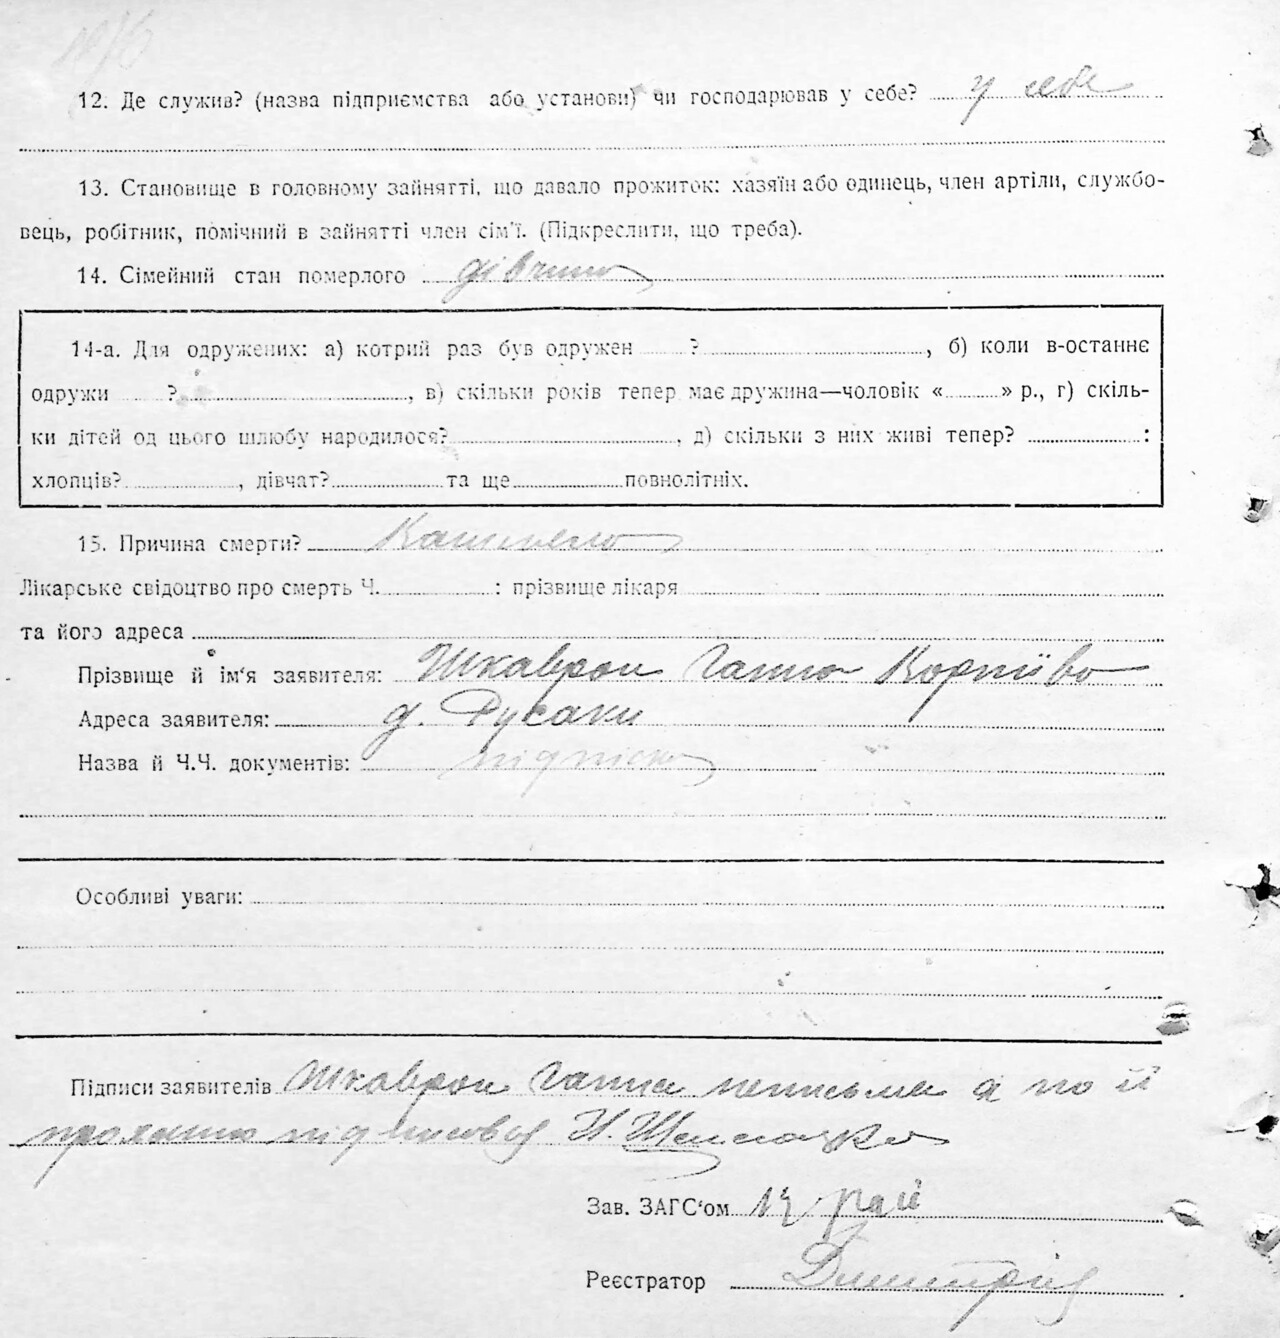 12. Де служив? (назва підприємства або установи) чи господарював у себе? у себе
13. Становище в головному зайнятті, що давало прожиток: хазяїн або одинець, член артіли, службо-
вець, робітник, помічний в зайнятті член сім'ї. (Підкреслити, що треба).
14. Сімейний стан померлого дівчина
14-а. Для одружених: а) котрий раз був одружен ? , б) коли в-останнє
одружи ? , в) скільки років тепер має дружина—чоловік « » р., г) скіль-
ки дітей од цього шлюбу народилося? , д) скільки з них живі тепер? :
хлопців? , дівчат? та ще повнолітніх.
15. Причина смерти?
Лікарське свідоцтво про смерть Ч. : прізвище лікаря
та його адреса
Прізвище й ім'я заявителя: Шкаврон Ганна
Адреса заявителя: д. Русаки
Назва й Ч.Ч. документів: підписка
Особливі уваги:
Підписи заявителів Шкаврон Ганна неписьмена а по її
проханню підписовся Н.
Зав. ЗАГС'ом
Реєстратор